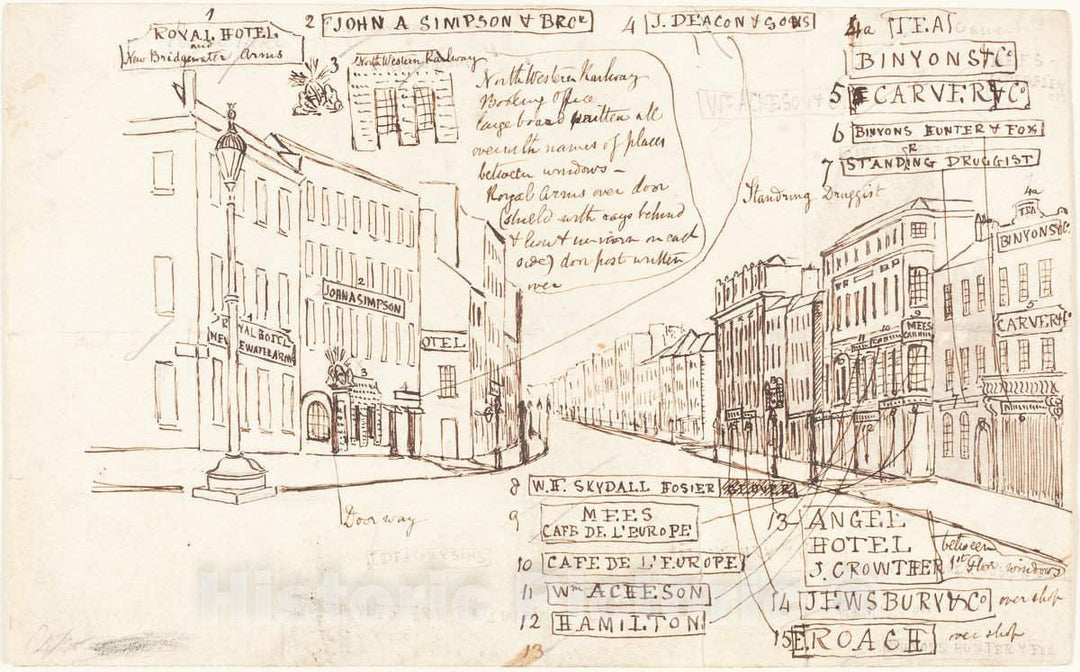 1
ROYAL HOTEL
and
New Bridgewater Arms
2 JOHN A SIMPSON & BROR
3 North Western Railway
North Western Railway
Booking Office
large board written all
over with names of places
between windows –
Royal Arms over door
(shield with rays behind
& lion & unicorn on each
side) door post written
over
4 J. DEACON & SONS
4a TEA
BINYONS & Co
5 CARVER & Co
6 BINYONS HUNTER & FOX
7 STANDRING DRUGGIST
Standring Druggist
Wm ACHESON &
2
JOHN A SIMPSON
1
ROYAL HOTEL
NEW
EWATER ARMS
OTEL
3
4
4a
TEA
BINYONS & Co
5
CARVER & Co
9
MEES
10
11
12
7
6
8
15
14
Doorway
J. DEACON & SONS
8 W. H. SKYDALL HOSIER
9 MEES
CAFE DE L'EUROPE
10 CAFE DE L'EUROPE
11 Wm ACHESON
12 HAMILTON
13
13 ANGEL
HOTEL
J. CROWTHER
between
1st floor windows
14 JEWSBURY & Co over shop
15 E. ROACH over shop
Historic Pictoric